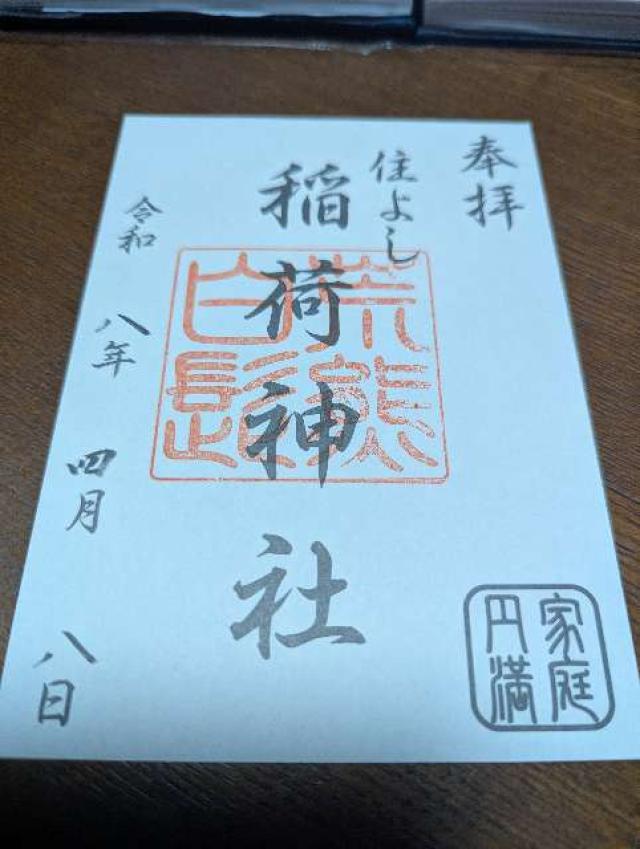 奉拝
住よし
稲荷神社
荒熊
白髭
令和八年四月八日
家庭
円満